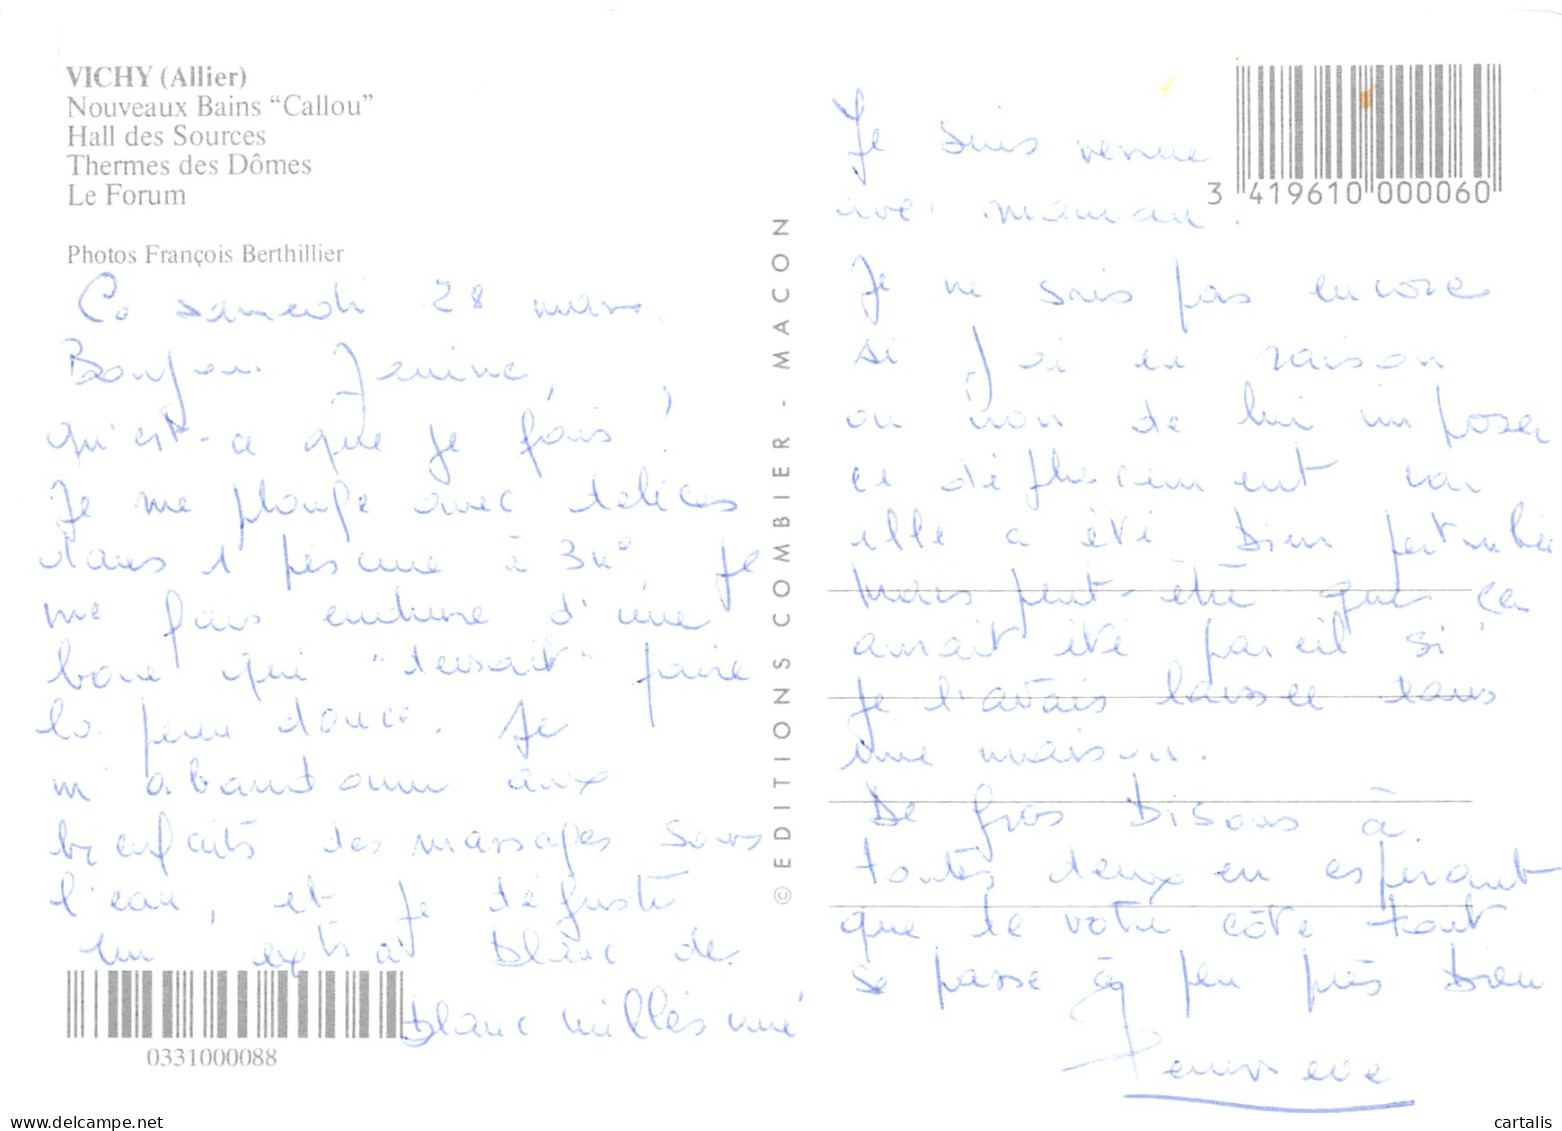 VICHY (Allier)
Nouveaux Bains “Callou”
Hall des Sources
Thermes des Dômes
Le Forum
Photos François Berthillier
Ce samedi 28 mars.
Bonjour Janine,
qu'est-ce que je fais !
Je me plonge avec délices
dans 1 piscine à 34°. Je
me fais enduire d'une
boue qui "devrait" faire
la peau douce. Je
m'abandonne aux
bienfaits des massages sous
l'eau, et je déguste
un extra blanc de
blanc millésimé
0331000088
© EDITIONS COMBIER - MACON
3 419610 000060
Je suis venue
avec maman.
Je ne sais pas encore
si j'ai eu raison
ou non de lui imposer
ce déplacement car
elle a été bien perturbée
Mais peut-être que ça
aurait été pareil si
je l'avais laissée dans
une maison.
De gros bisous à
toutes deux en espérant
que de votre côté tout
se passe à peu près bien
Genevieve
www.delcampe.net
cartalis